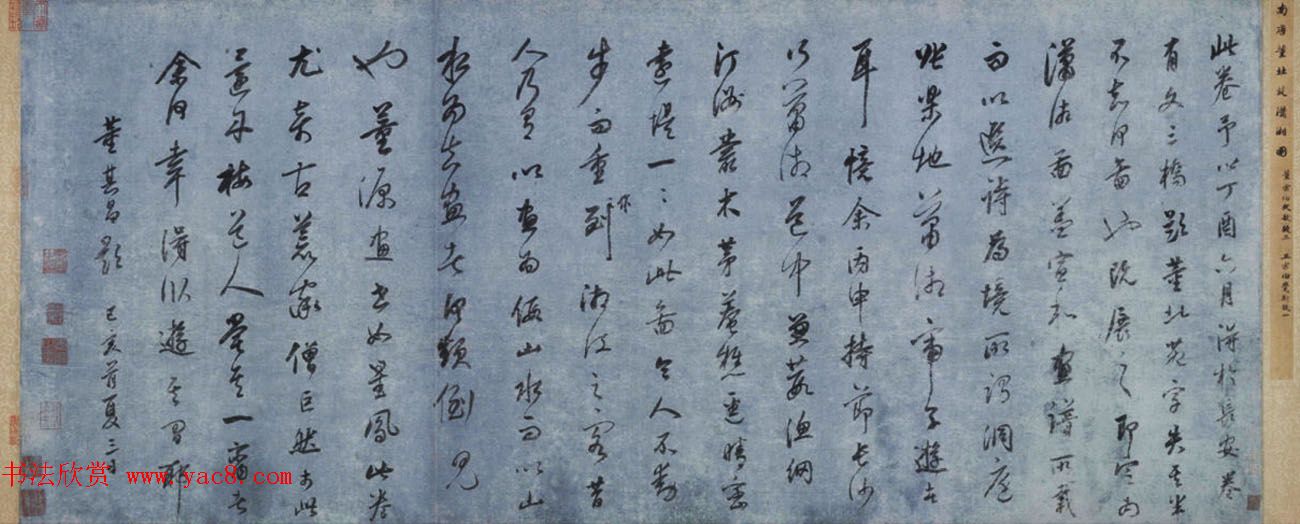 南唐董北苑瀟湘圖 董宗伯
此卷予以丁酉六月得於長安卷
有文三橋題董北苑字失其半
不知何圖也既展之即定為
瀟湘圖蓋宣和畫譜所載
而以選詩為境所謂洞庭
張樂地瀟湘帝子遊者
耳憶余丙申持節長沙
行瀟湘道中蒹葭漁網
汀洲叢木茅菴樵逕晴巒
遠堤一一如此圖令人不動
步而重到湘江之客昔
作
人乃有以畫為假山水而以山
水為真畫者何顛倒見
也董源畫世如星鳳此卷
尤奇古荒率僧巨然於此
還丹梅道人嘗其一臠者
余何幸得臥遊其間耶
董其昌題 己亥首夏三日
书法欣赏 www.yac8.com